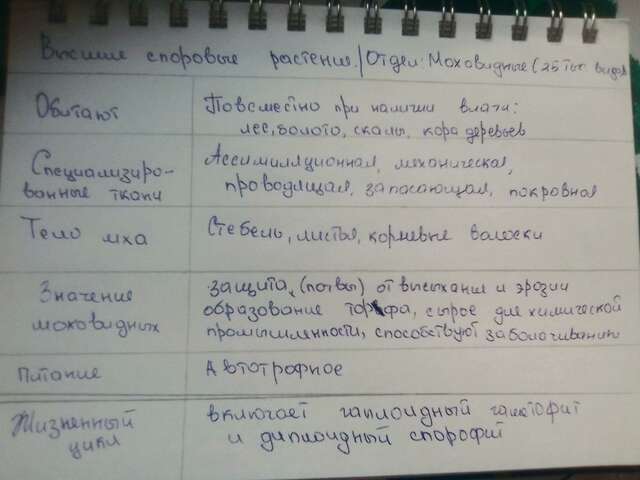 Высшие споровые растения./Отдел: Моховидные (25 тыс. видов
Обитают
Повсместно при наличии влаги:
лес, болото, скалы, кора деревьев
Специализиро-
ванные ткани
Ассимиляционная, механическая,
проводящая, запасающая, покровная
Тело мха
Стебель, листья, корневые волоски
Значение
моховидных
защита (почвы) от высыхания и эрозии
образование торфа, сырое для химической
промышленности, способствуют заболачиванию
Питание
Автотрофное
Жизненный
цикл
включает гаплоидный гаметофит
и диплоидный спорофит